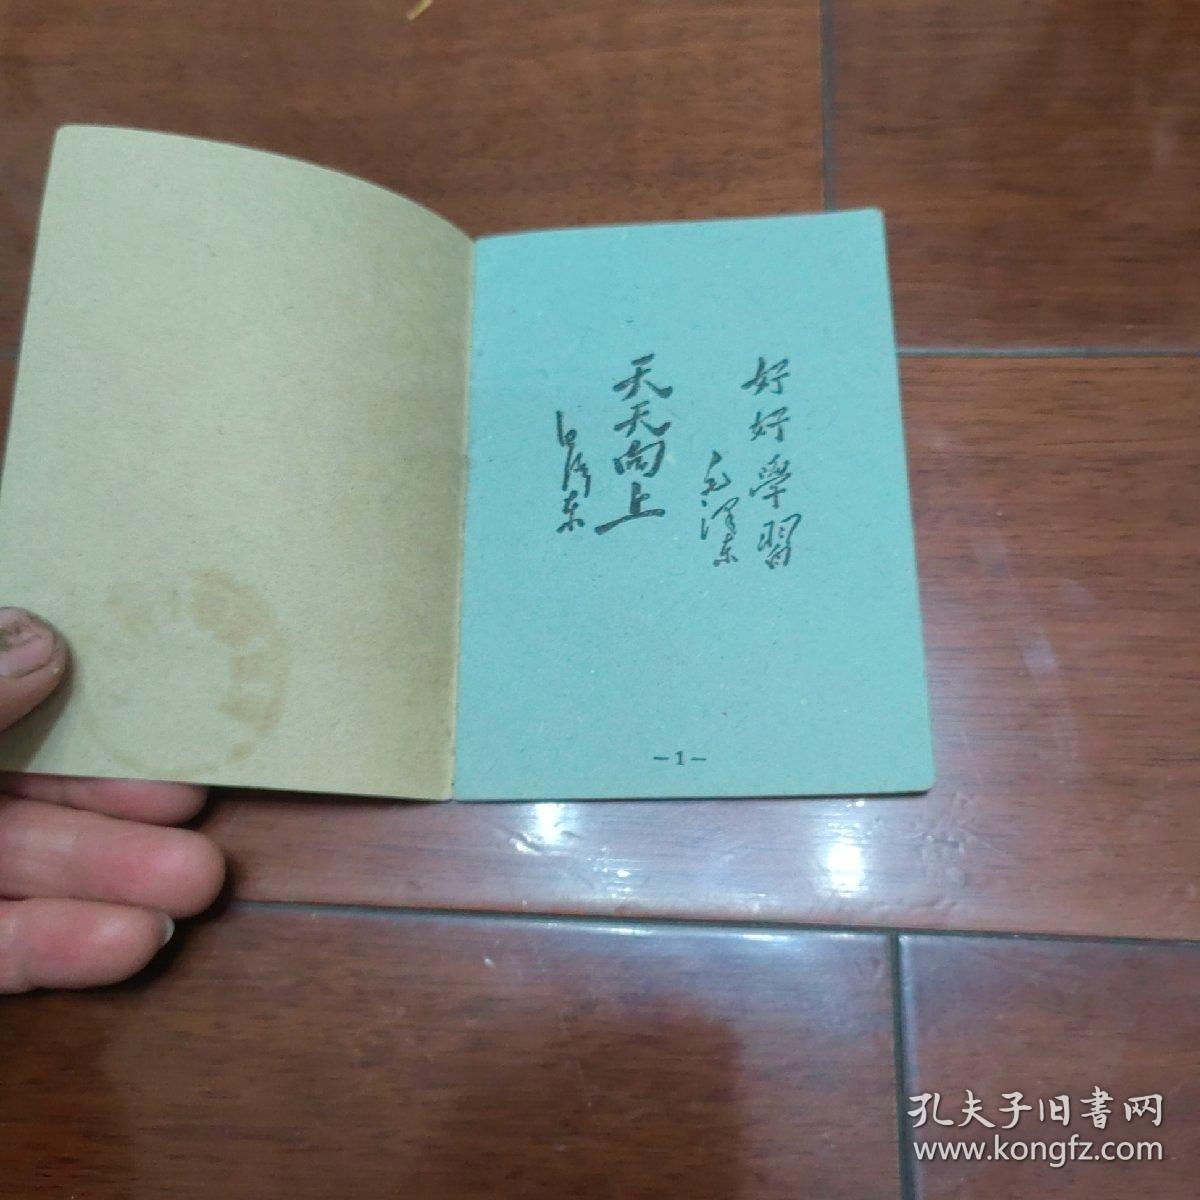 好好學習
毛澤東
天天向上
毛泽东
—1—
孔夫子旧書网
www.kongfz.com